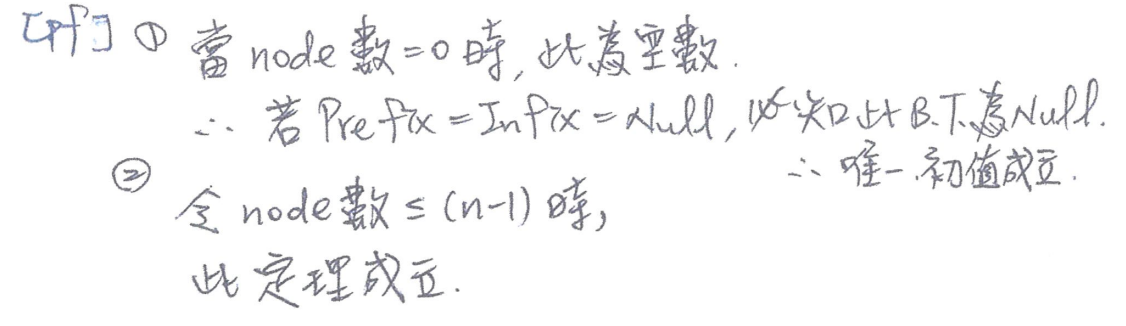 [pf] ① 當 node 數=0 時, 此為空數.
∴ 若 Prefix = Infix = Null, 必知此 B.T. 為 Null.
∴ 唯一. 初值成立.
② 令 node 數 ≤ (n-1) 時,
此定理成立.